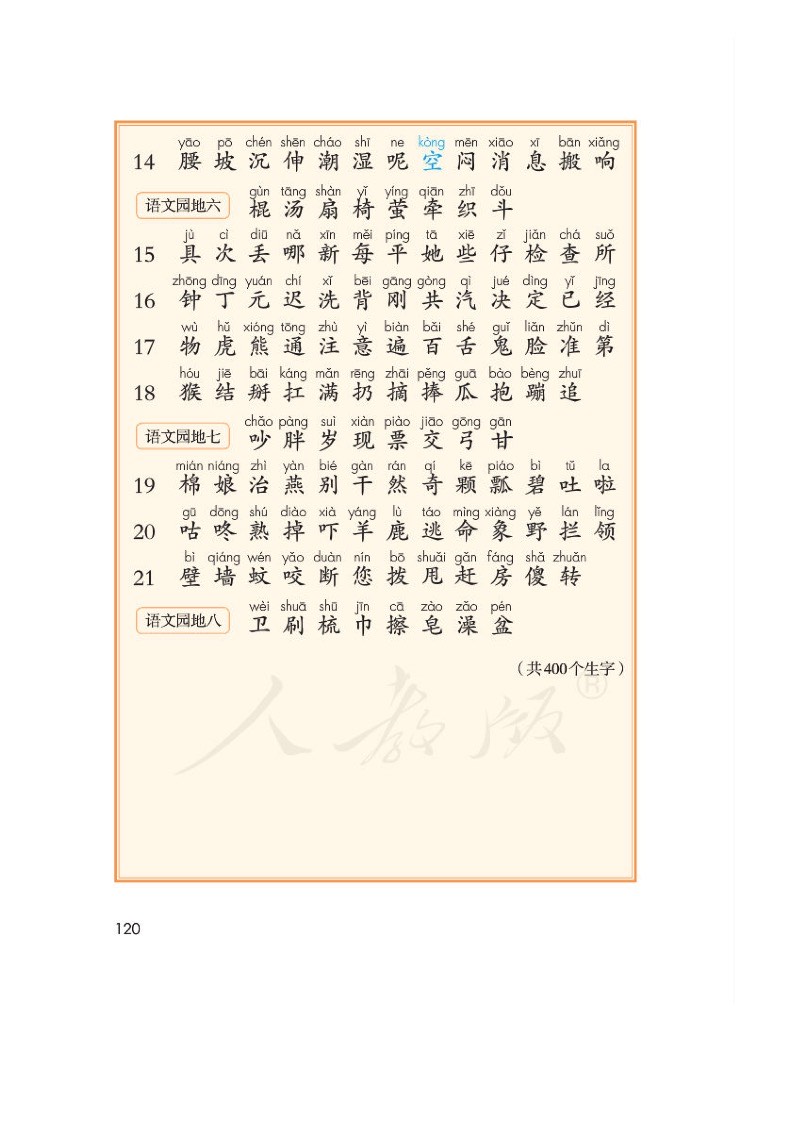 yāo pō chén shēn cháo shī ne kòng mēn xiāo xī bān xiǎng
14 腰 坡 沉 伸 潮 湿 呢 空 闷 消 息 搬 响
gùn tāng shàn yǐ yíng qiān zhī dǒu
语文园地六 棍 汤 扇 椅 萤 牵 织 斗
jù cì diū nǎ xīn měi píng tā xiē zǐ jiǎn chá suǒ
15 具 次 丢 哪 新 每 平 她 些 仔 检 查 所
zhōng dīng yuán chí xǐ bēi gāng gòng qì jué dìng yǐ jīng
16 钟 丁 元 迟 洗 背 刚 共 汽 决 定 已 经
wù hǔ xióng tōng zhù yì biàn bǎi shé guǐ liǎn zhǔn dì
17 物 虎 熊 通 注 意 遍 百 舌 鬼 脸 准 第
hóu jiē bāi káng mǎn rēng zhāi pěng guā bào bèng zhuī
18 猴 结 掰 扛 满 扔 摘 捧 瓜 抱 蹦 追
chǎo pàng suì xiàn piào jiāo gōng gān
语文园地七 吵 胖 岁 现 票 交 弓 甘
mián niáng zhì yàn bié gàn rán qí kē piáo bì tǔ la
19 棉 娘 治 燕 别 干 然 奇 颗 瓢 碧 吐 啦
gū dōng shú diào xià yáng lù táo mìng xiàng yě lán lǐng
20 咕 咚 熟 掉 吓 羊 鹿 逃 命 象 野 拦 领
bì qiáng wén yǎo duàn nín bō shuǎi gǎn fáng shǎ zhuǎn
21 壁 墙 蚊 咬 断 您 拨 甩 赶 房 傻 转
wèi shuā shū jīn cā zào zǎo pén
语文园地八 卫 刷 梳 巾 擦 皂 澡 盆
（共400个生字）
人教版®
120